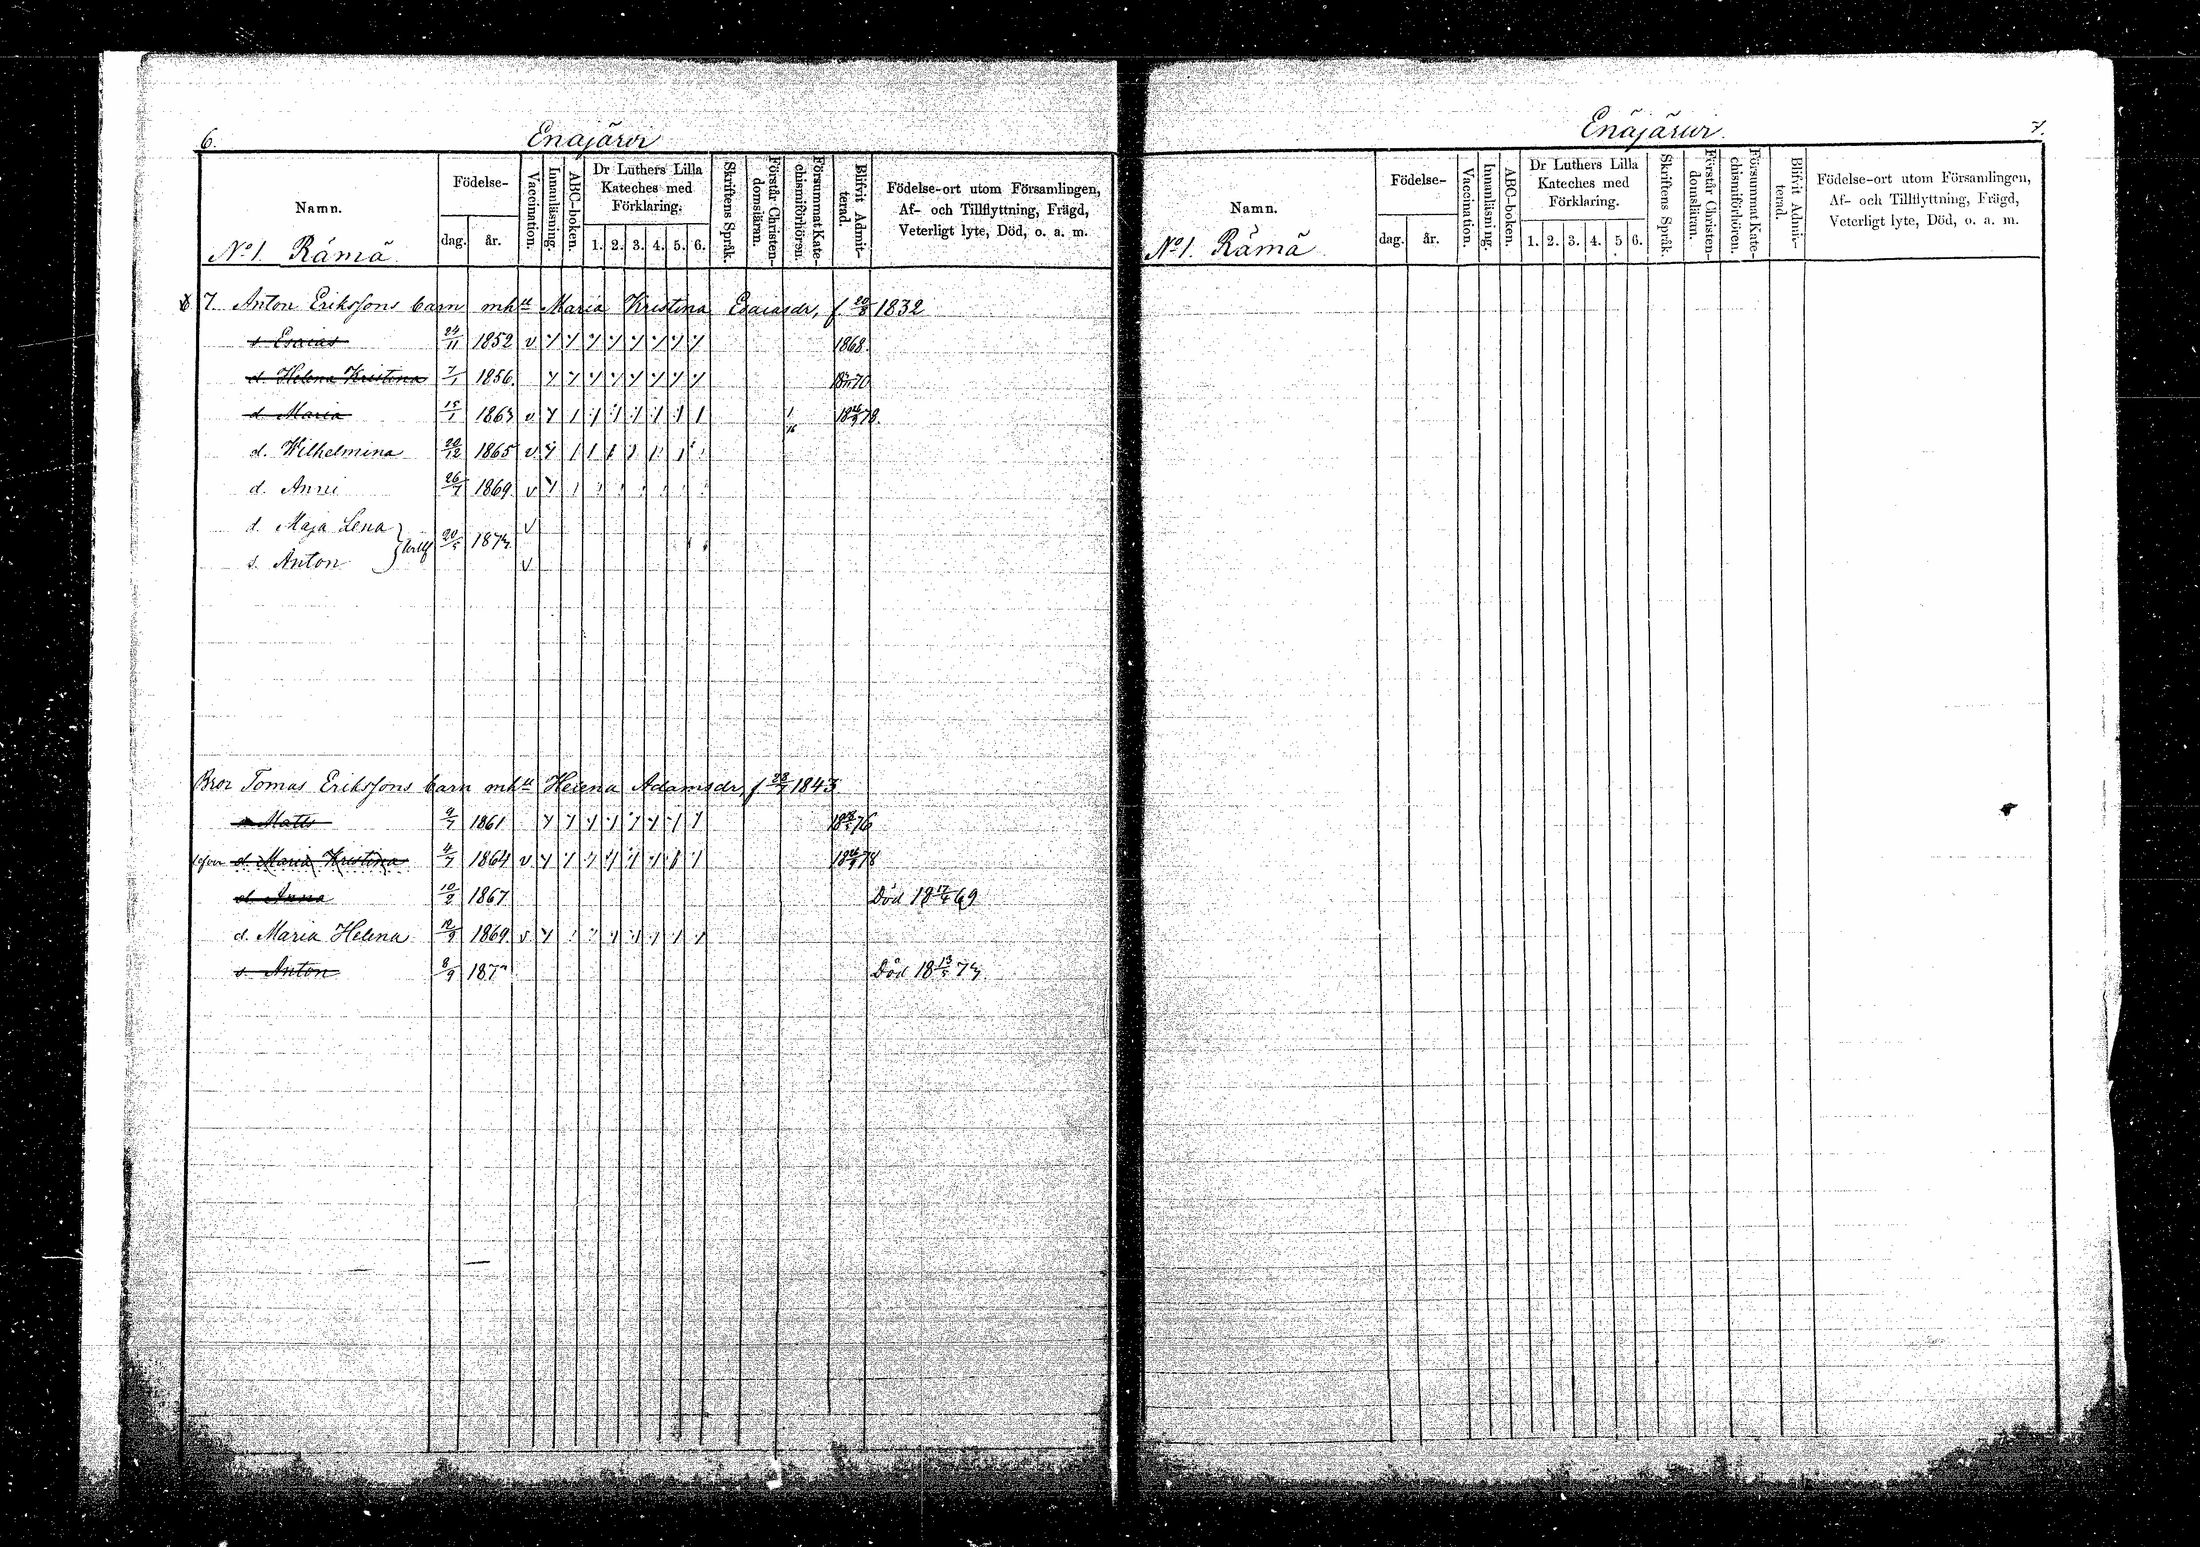 6.
Enäjärvi
Namn.
Födelse-
dag.
år.
Vaccination.
Innanläsning.
ABC-boken.
Dr Luthers Lilla
Kateches med
Förklaring.
1. 2. 3. 4. 5. 6.
Skriftens Språk.
Förstår Christen-
domsläran.
Försummat Kate-
chismiförhören.
Blifvit Admit-
terad.
Födelse-ort utom Församlingen,
Af- och Tillflyttning, Frägd,
Veterligt lyte, Död, o. a. m.
No 1. Rämä
7. Anton Erikssons barn mh u Maria Kristina Esaiasdr, f 20/8 1832
s Esaias 24/11 1852 v 1868.
d. Helena Kristina 7/1 1856. 1870
d. Maria 15/1 1863 v 1878.
d. Wilhelmina 20/12 1865 v
d. Anni 26/7 1869 v
d. Maja Lena v
20/5 1873.
s. Anton v
Bror Tomas Erikssons barn mh u Helena Adamsdr, f 28/7 1843
s Matts 9/7 1861 1876
d. Maria Kristina 4/7 1864 v 1878
d. Anna 10/2 1867 Död 18 17/4 69
d. Maria Helena 12/9 1869 v
s. Anton 8/9 187 Död 18 13/5 73.
Enäjärvi.
7.
Namn.
Födelse-
dag.
år.
Vaccination.
Innanläsning.
ABC-boken.
Dr Luthers Lilla
Kateches med
Förklaring.
1. 2. 3. 4. 5. 6.
Skriftens Språk.
Förstår Christen-
domsläran.
Försummat Kate-
chismiförhören.
Blifvit Admit-
terad.
Födelse-ort utom Församlingen,
Af- och Tillflyttning, Frägd,
Veterligt lyte, Död, o. a. m.
No 1. Rämä